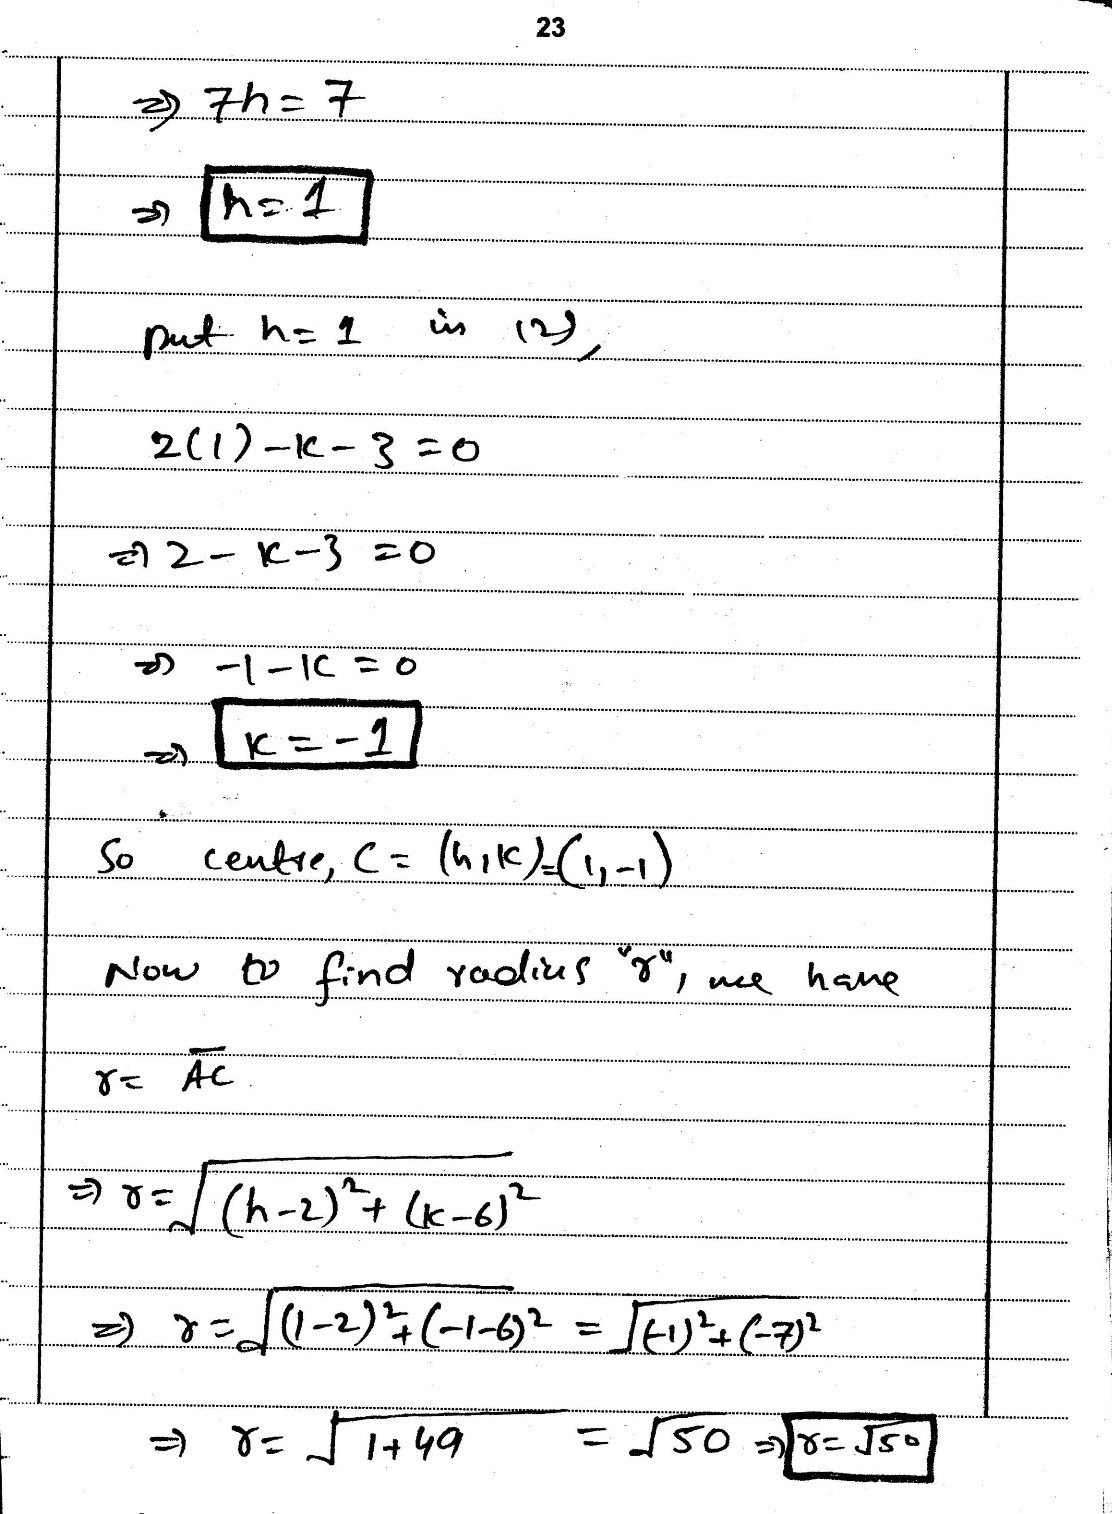 23
⇒ 7h = 7
⇒ h = 1
put h = 1 in (2),
2(1) - k - 3 = 0
⇒ 2 - k - 3 = 0
⇒ -1 - k = 0
⇒ k = -1
So centre, C = (h, k) = (1, -1)
Now to find radius "r", we have
r = A̅C̅
⇒ r = √((h-2)² + (k-6)²)
⇒ r = √((1-2)² + (-1-6)²) = √((-1)² + (-7)²)
⇒ r = √(1+49) = √50 ⇒ r = √50